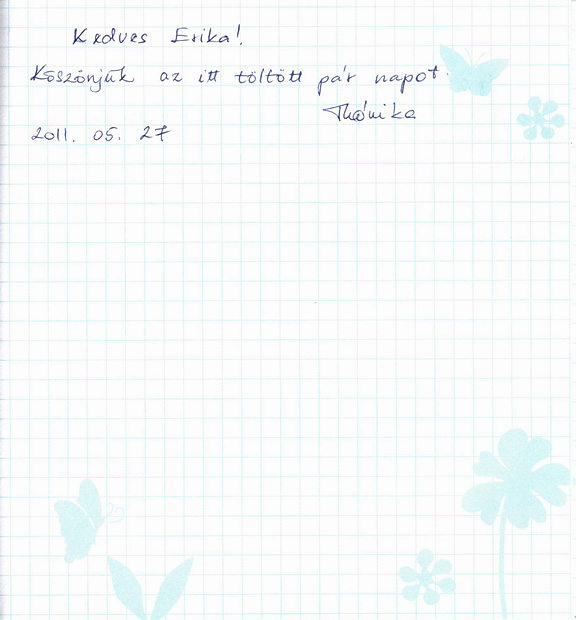 Kedves Erika!
Köszönjük az itt töltött pár napot.
2011. 05. 27